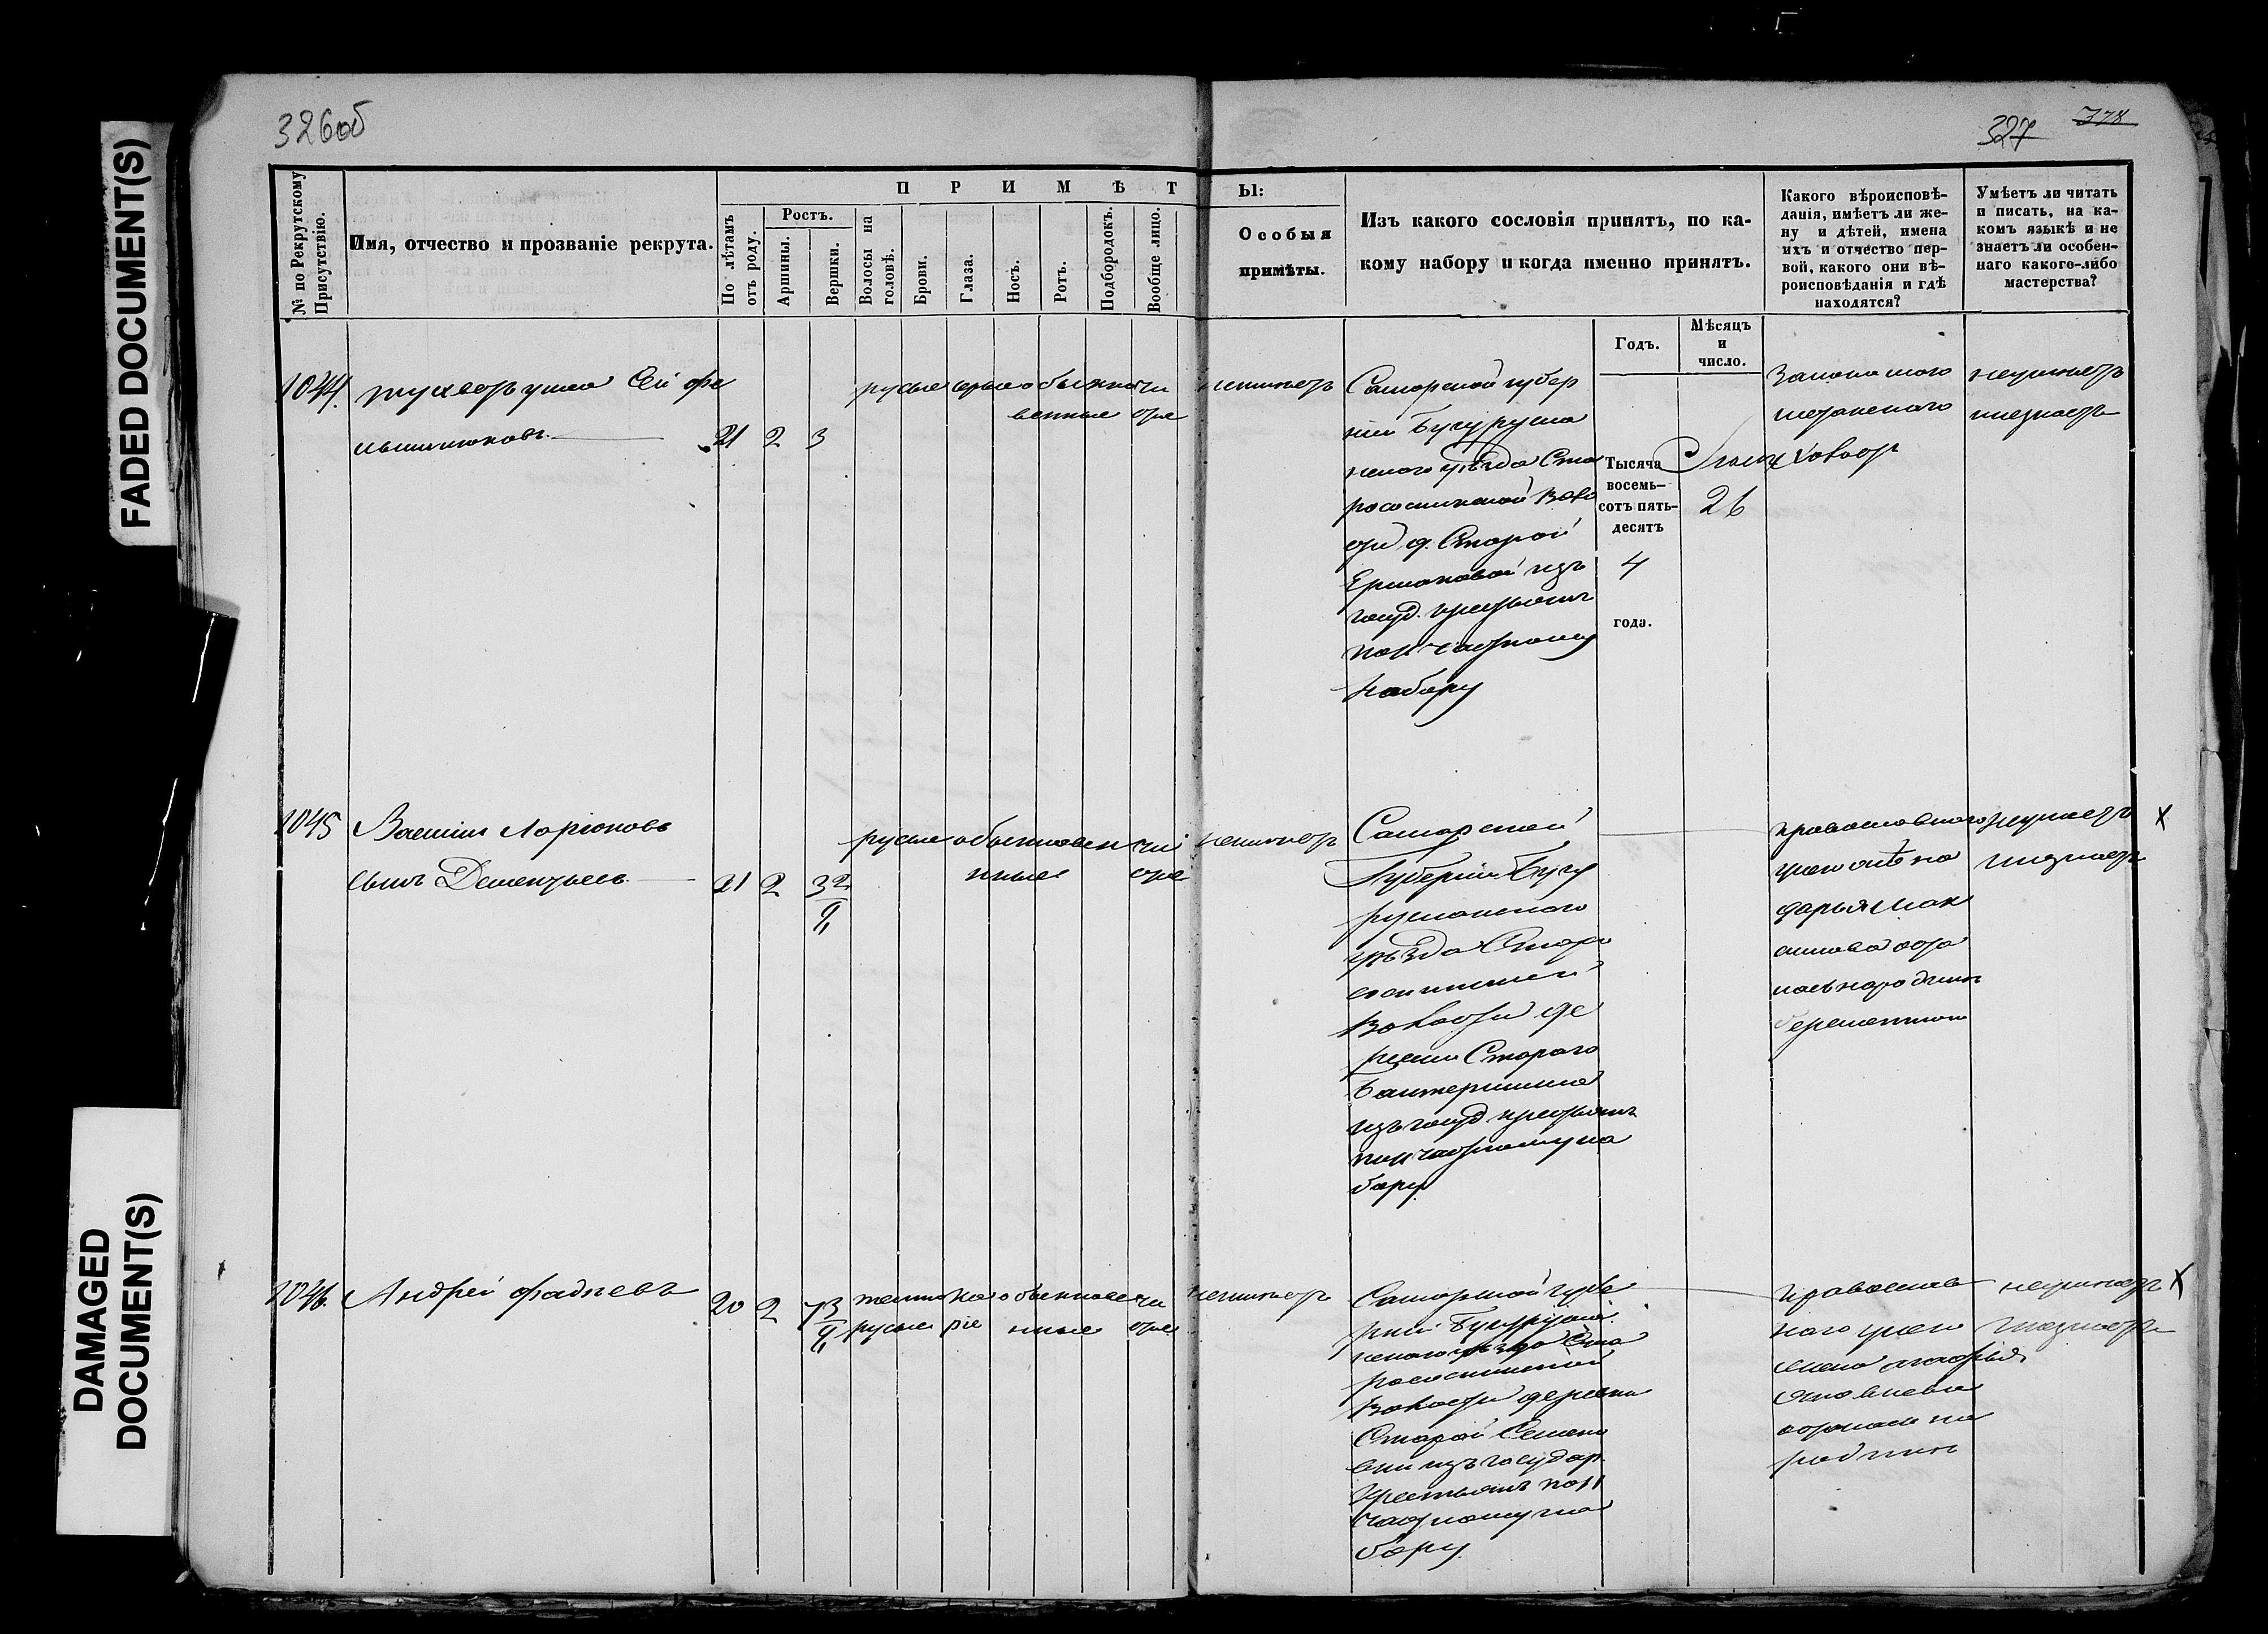 FADED DOCUMENT(S)
DAMAGED
DOCUMENT(S)
326об
327 378
№ по Рекрутскому Присутствію.
Имя, отчество и прозваніе рекрута.
ПРИМѢТЫ:
По лѣтамъ отъ роду.
Ростъ.
Аршины.
Вершки.
Волосы на головѣ.
Брови.
Глаза.
Носъ.
Ротъ.
Подбородокъ.
Вообще лицо.
Особыя
примѣты.
Изъ какого сословія принятъ, по ка-
кому набору и когда именно принятъ.
Годъ.
Мѣсяцъ
и
число.
Какого вѣроисповѣ-
данія, имѣетъ ли же-
ну и дѣтей, имена
ихъ и отчество пер-
вой, какого они вѣ-
роисповѣданія и гдѣ
находятся?
Умѣетъ ли читать
и писать, на ка-
комъ языкѣ и не
знаетъ ли особен-
наго какого-либо
мастерства?
1044.
21 2 3
русые серые обыкно чи
венные стое
неимѣетъ
Самарской губер
ніи Бугурусла
нского уѣзда Ста
рососнинской Воло
сти д. Старой
Ермаковой изъ
госуд. крестьянъ
по 11 частному
набору
Тысяча
восемь-
сотъ пять-
десятъ
4
года.
26
холостъ
неумѣетъ
незнаетъ
1045
Василій Ларіоновъ
сынъ Дементьевъ
21 2 3 2/8
русые обыкновен чи
нные стое
неимѣетъ
Самарской
Губерніи Бугу
русланского
уѣзда Старо
соснинской
Волости де
ревни Стараго
изъ госуд крестьянъ
по 11 частному на
бору
православного
жена его
дарья Мак
симова оста
лась на родинѣ
беременною
неумѣетъ
незнаетъ
х
1046.
Андрей фадѣевъ
20 2
темно ка обыкнове чи
русые ріе нные стое
неимѣетъ
Самарской губе
рніи Бугурусла
нского уѣзда Ста
рососнинской
Волости деревни
Старой Семенк
ени изъ государ.
Крестьянъ по 11
частному на
бору.
православ
ного жен
Яковлева
осталась на
родинѣ
неумѣетъ
незнаетъ
х